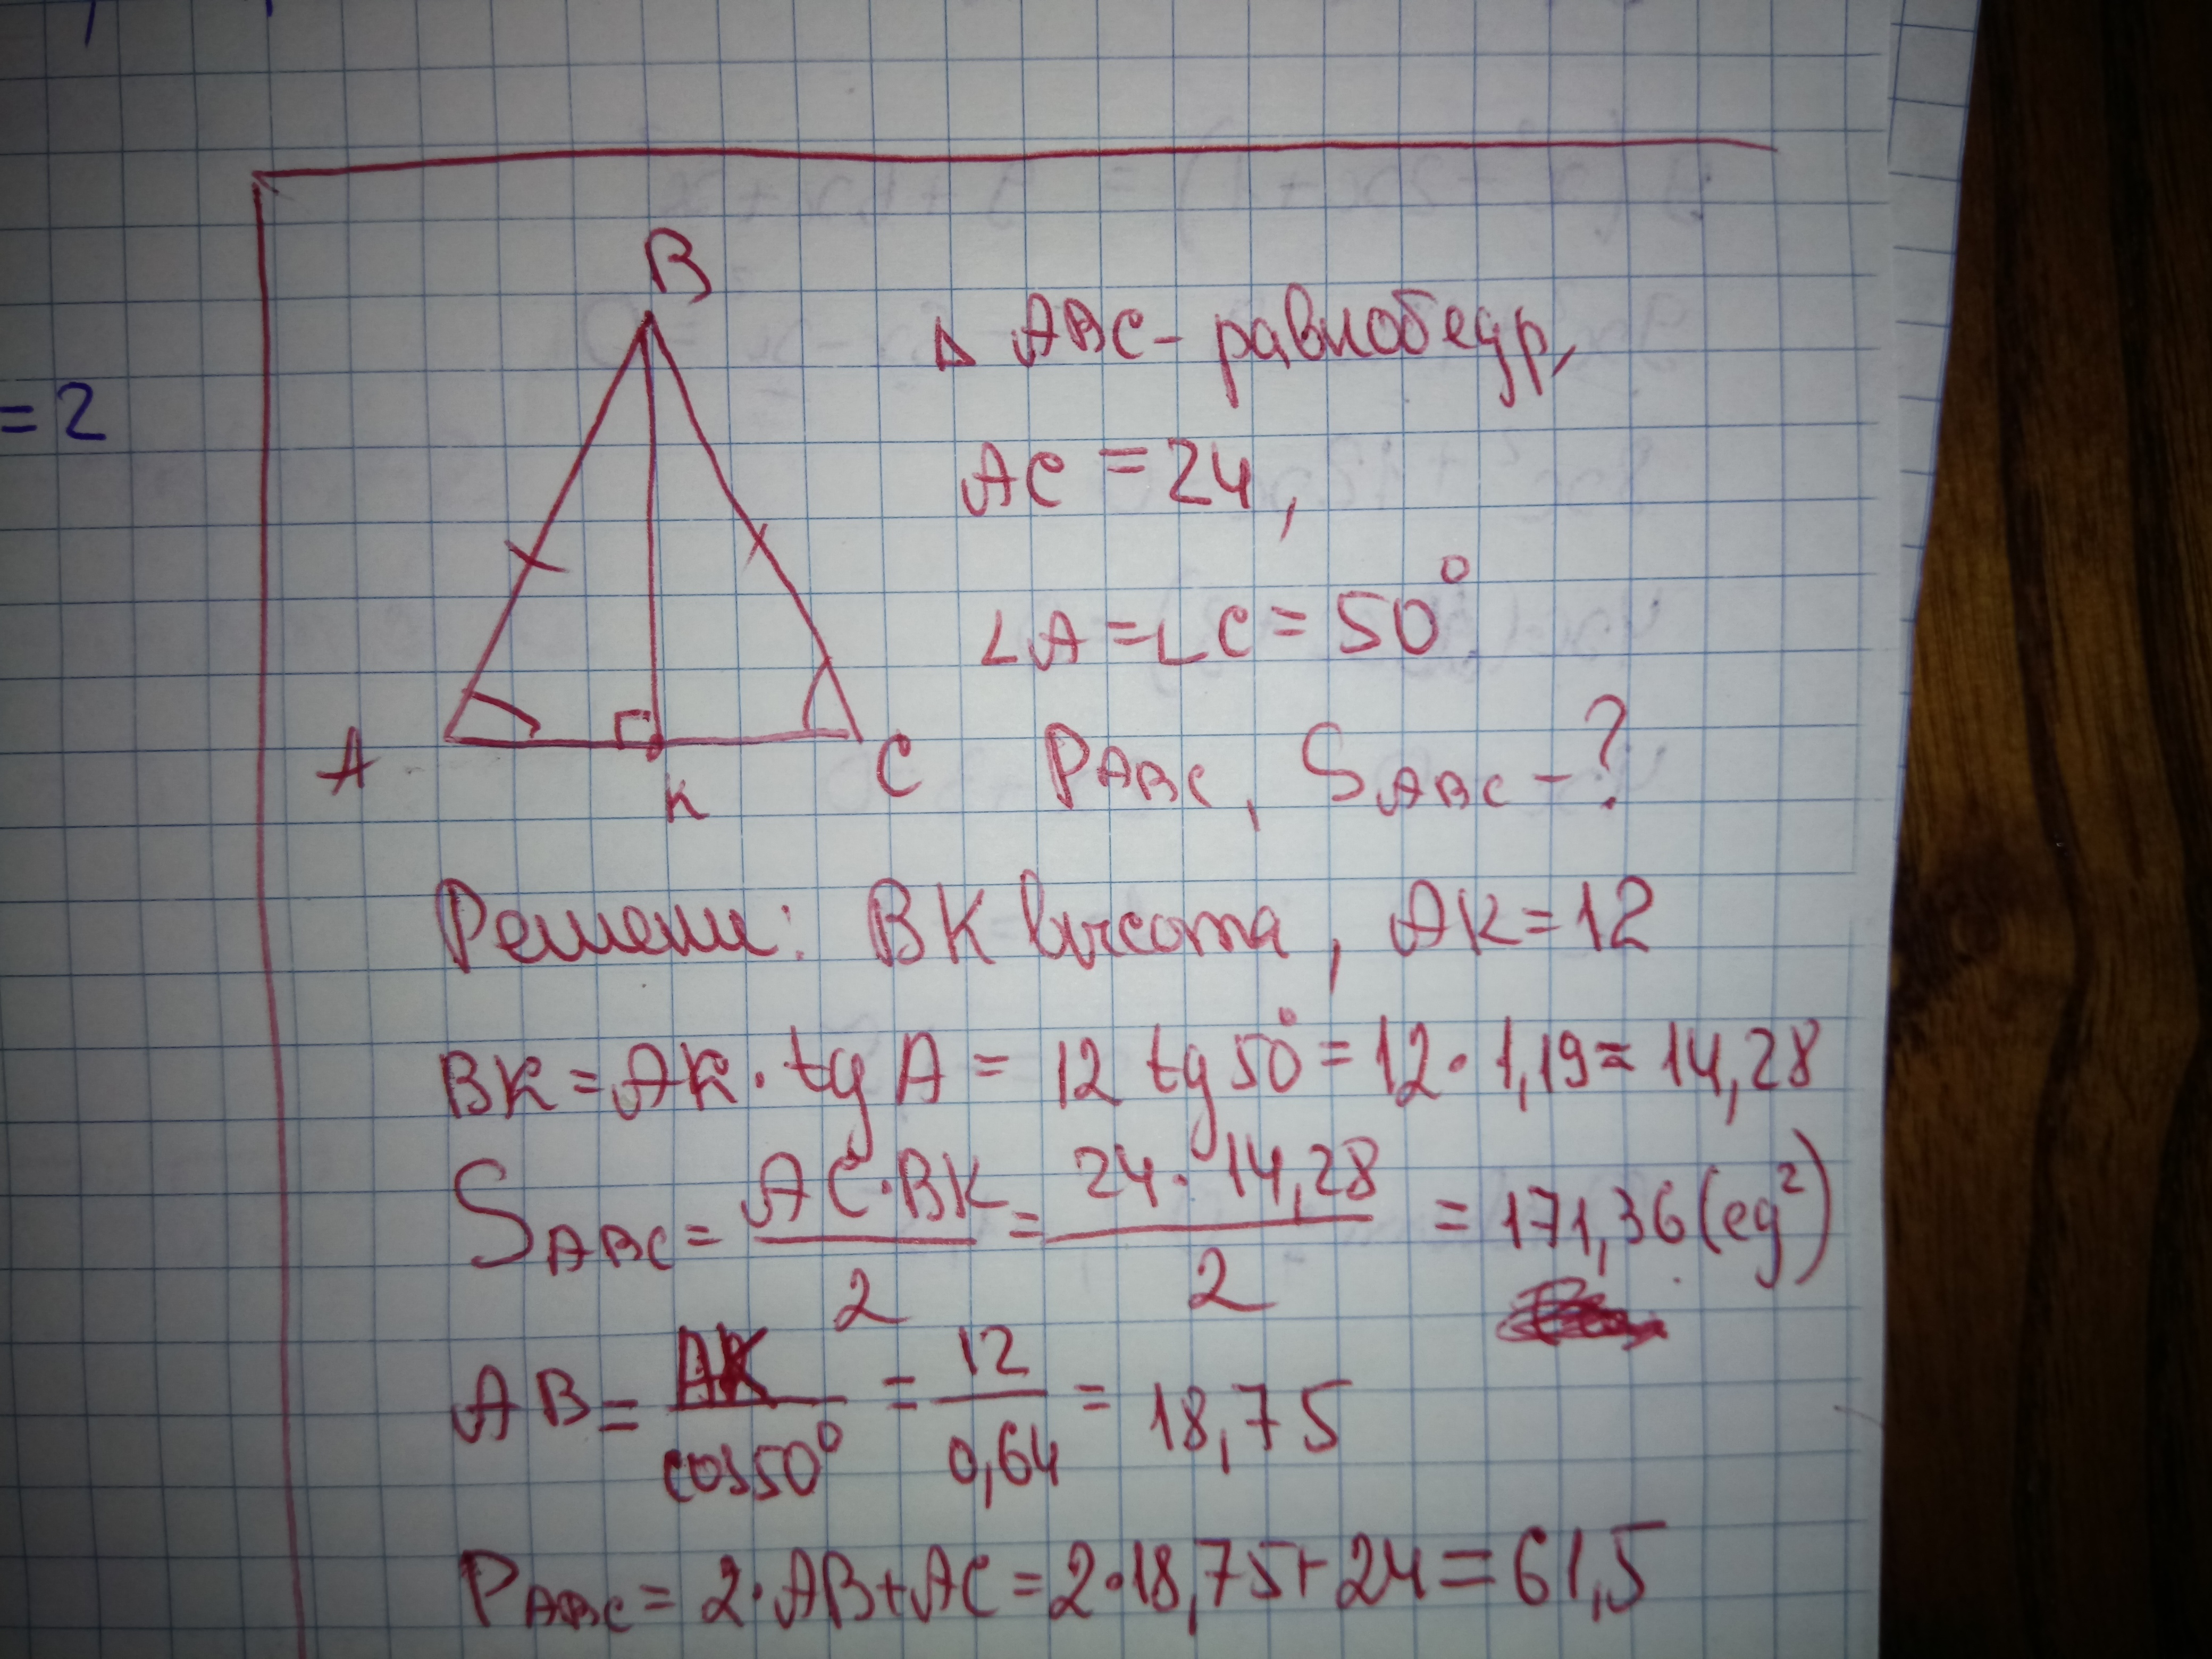 = 2
B
△ ABC - равнобедр,
AC = 24,
∠A = ∠C = 50°
A
K
C
P ABC, S ABC - ?
Решени: BK высота, AK = 12
BK = AK · tg A = 12 tg 50° = 12 · 1,19 = 14,28
S ABC = AC · BK / 2 = 24 · 14,28 / 2 = 171,36 (ед²)
AB = AK / cos 50° = 12 / 0,64 = 18,75
P ABC = 2 · AB + AC = 2 · 18,75 + 24 = 61,5